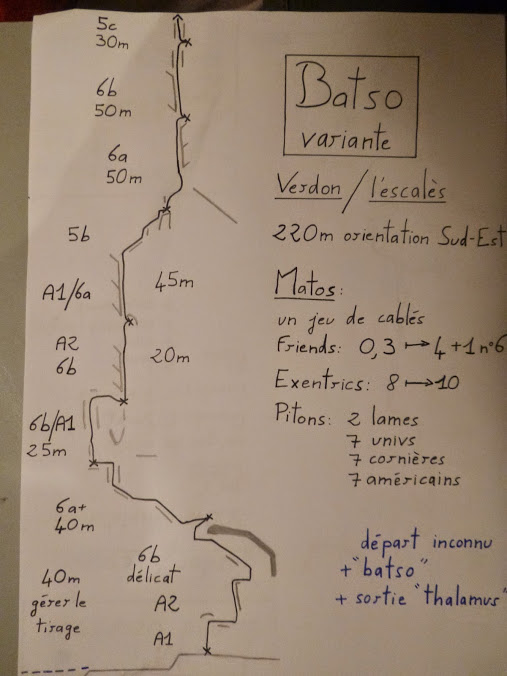 5c
30m
6b
50m
6a
50m
5b
A1/6a
45m
A2
6b
20m
6b/A1
25m
6a+
40m
40m
gérer le
tirage
6b
délicat
A2
A1
Batso
variante
Verdon / l'éscalès
220m orientation Sud-Est
Matos:
un jeu de cablés
Friends: 0,3 ↦ 4 + 1 n°6
Exentrics: 8 ↦ 10
Pitons: 2 lames
7 univs
7 cornières
7 américains
départ inconnu
+ "batso"
+ sortie "thalamus"